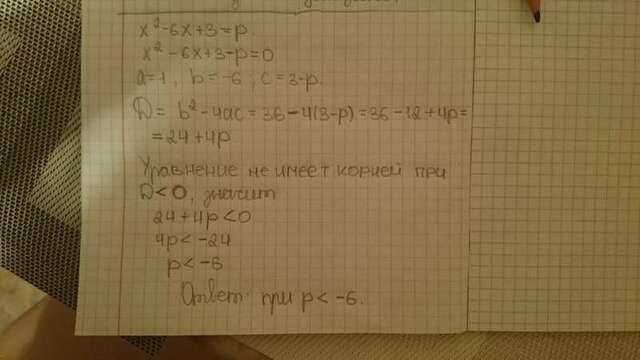 x² - 6x + 3 = p
x² - 6x + 3 - p = 0
a = 1, b = -6, c = 3 - p
D = b² - 4ac = 36 - 4(3 - p) = 36 - 12 + 4p =
= 24 + 4p
Уравнение не имеет корней при
D < 0, значит
24 + 4p < 0
4p < -24
p < -6
Ответ: при p < -6.